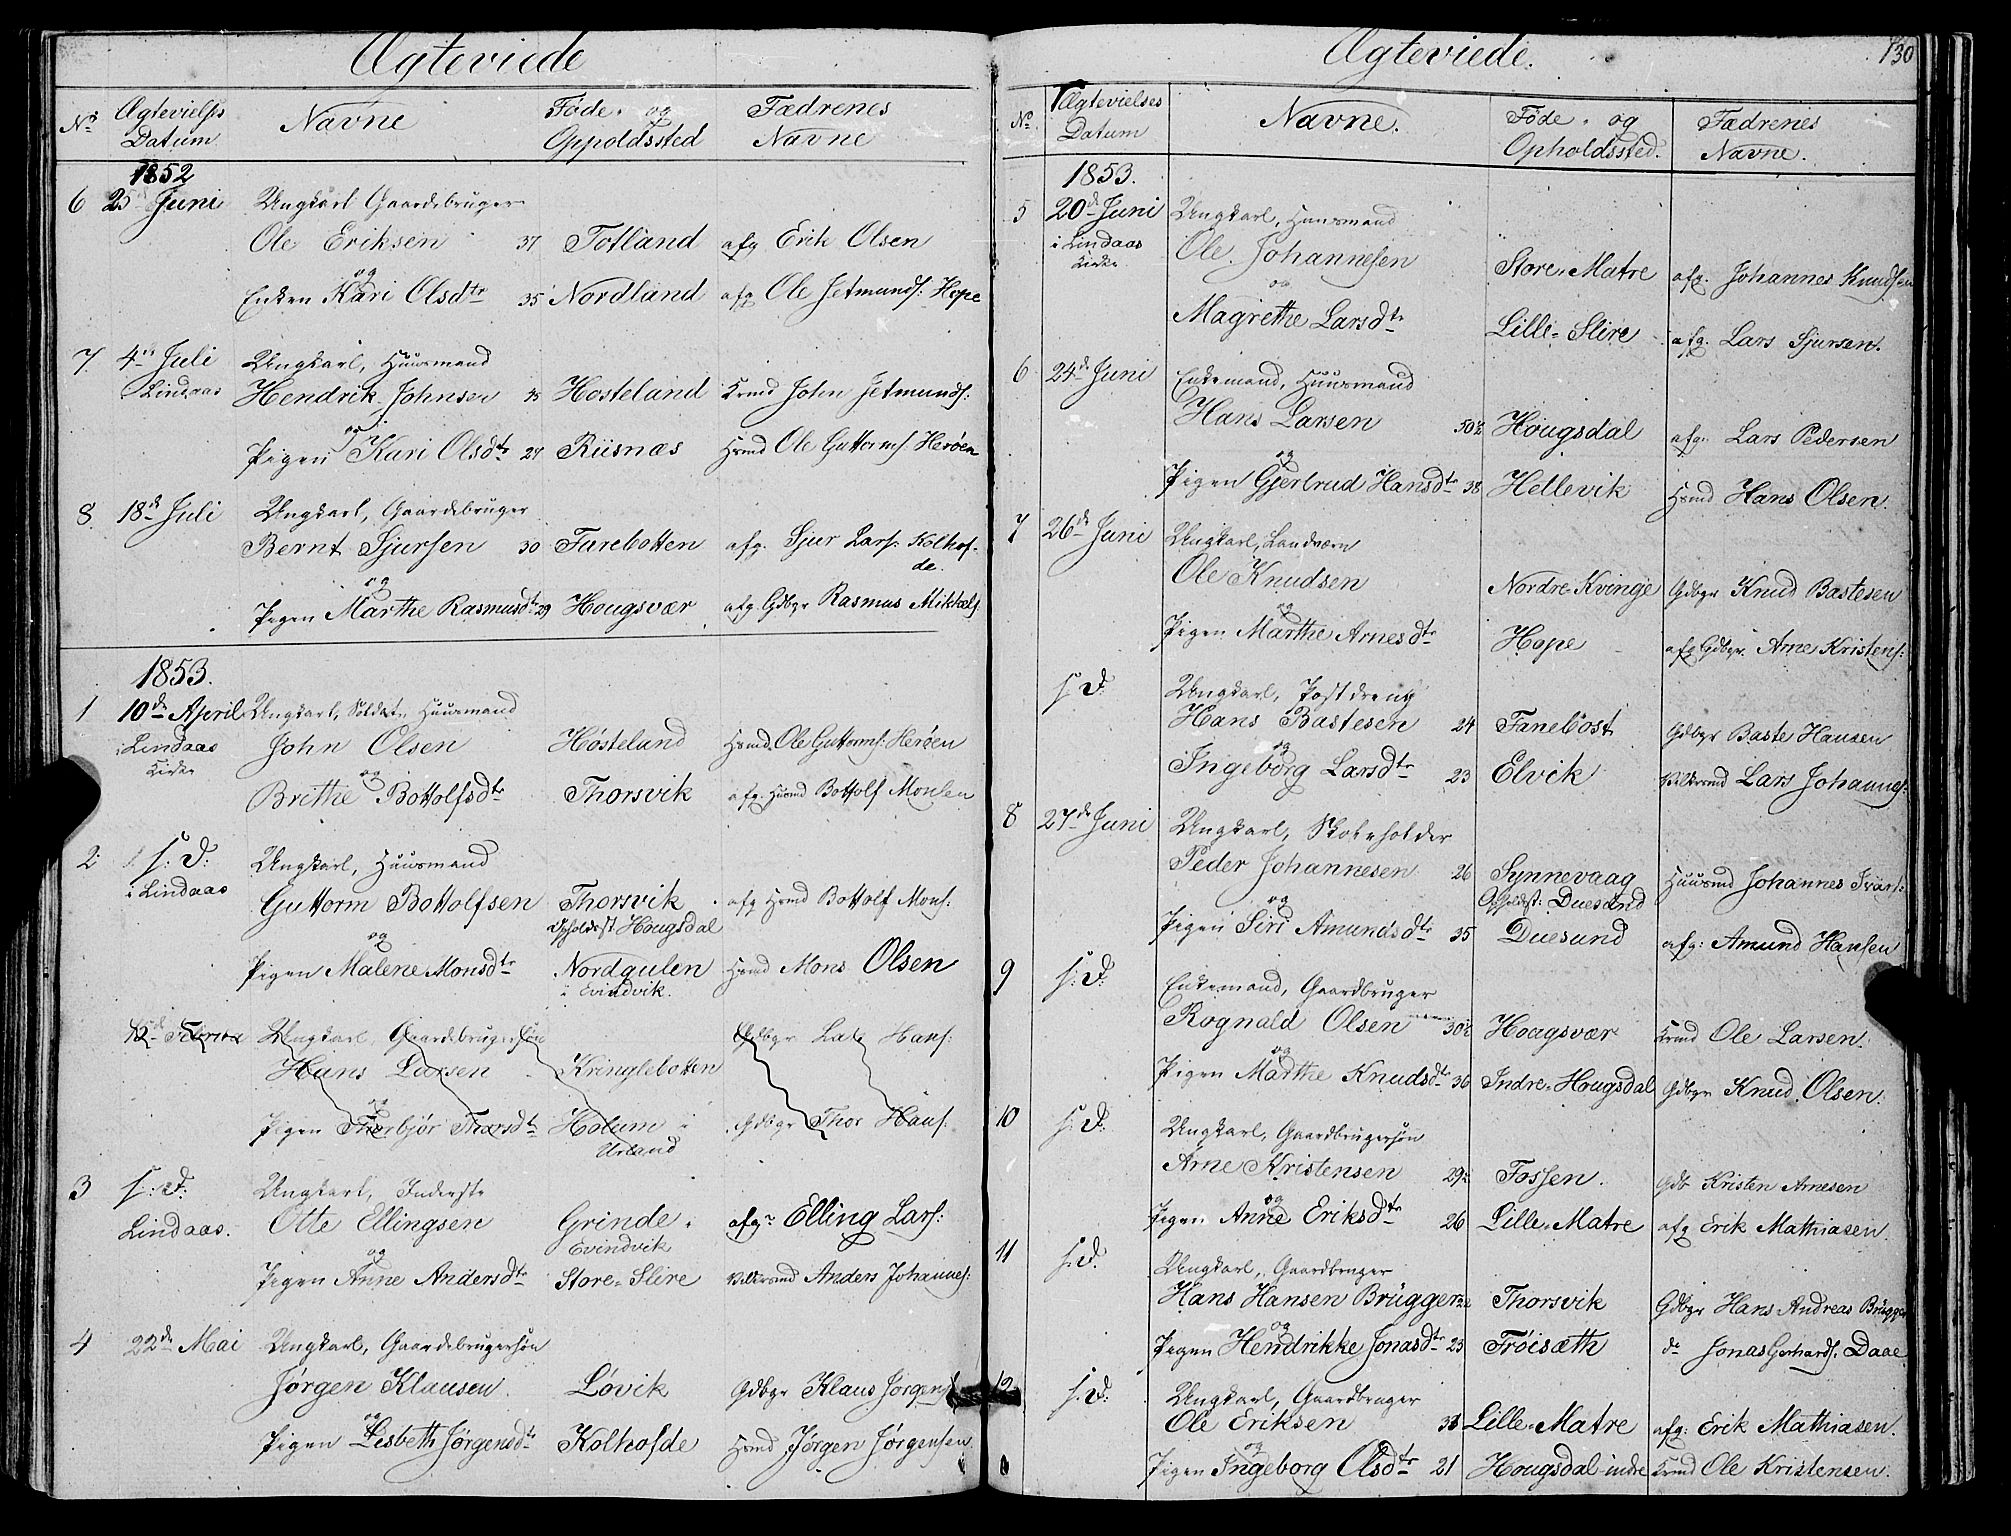 Ægteviede
No Ægtevielses Datum Navne Føde- og Oppoldssted Fædrenes Navne
1852
6 25 Juni Ungkarl Gaardebruger
Ole Eriksen 37 Totland afg Erik Olsen
og
Enken Kari Olsdtr 35 Nordland afg Ole Jetmunds: Hope
7 4de Juli Ungkarl, Huusmand
Lindaas Hendrik Johnsen Hosteland Krmd John Jetmunds:
og
Pigen Kari Olsdtr 27 Riisnæs Hsmd Ole Guttorms: Herøen
8. 18de Juli Ungkarl, Gaardebruger
Bernt Sjursen 30 Furebotten afg. Sjur Lars: Kolhof-
de.
og
Pigen Marthe Rasmusdtr 29 Hougsvær afg. Gdbgr Rasmus Mikkels:
1853.
1 10de April Ungkarl, Soldat, Huusmand
i Lindaas John Olsen Høsteland Hsmd, Ole Guttorms: Herøen
Kirke og
Brithe Bottolfsdtr Thorsvik afg. Husmd Bottolf Monsen
2. s: D: Ungkarl, Huusmand
i Lindaas Guttorm Bottolfsen Thorsvik afg Hsmd Bottolf Mons:
Opholdsst Hougsdal
og
Pigen Malene Monsdtr Nordgulen Hsmd Mons Olsen
i Evindvik.
Ungkarl, Gaardebrugersøn Gdbgr Hans:
Hans Larsen Kringlebotten
og
Pigen Thorbjør Thorsdtr Holum i Gdbgr Thor Hans:
Urland
3 s: D: Ungkarl, Inderste
Lindaas. Otte Ellingsen Grinde afg Elling Lars:
og Evindvik
Pigen Anne Andersdtr Store-Slire Vilkrmd Anders Johannes:
4 22de Mai Ungkarl, Gaardebrugersøn
Jørgen Klausen. Løvik Gdbgr Klaus Jørgens:
og
Pigen Lisbeth Jørgensdtr Kolhofde Hsmd Jørgen Jørgensen
Ægteviede. 130
No Ægtevielses Datum Navne. Føde- og Opholdssted. Fædrenes Navne.
1853.
5 20de Juni Ungkarl, Huusmand
i Lindaas Ole Johannesen Store-Matre afg. Johannes Knudsen
Kirke og
Magrethe Larsdtr Lille-Slire afg. Lars Sjursen.
6 24de Juni Enkemand, Huusmand
Hans Larsen 50½ Hougsdal afg. Lars Pedersen
og
Pigen Gjertrud Hansdtr 38 Hellevik Hsmd Hans Olsen.
7 26de Juni Ungkarl, Landværn
Ole Knudsen Nordre Kvinge Gdbgr Knud Bastesen
og
Pigen Marthe Arnesdtr Hope afg Gdbgr. Arne Kristens:
s. D: Ungkarl, Postdreng
Hans Bastesen 24 Fanebost Gdbgr Baste Hansen
og
Ingeborg Larsdtr 23 Elvik Vilkrmd Lars Johannes:
8 27de Juni Ungkarl, Skoleholder
Peder Johannesen 26 Synnevaag Huusmd Johannes Ivars:
Opholdst: Duesund
og
Pigen Siri Amundsdtr 35 Duesund afg: Amund Hansen
9 s: D: Enkemand, Gaardbruger
Rognald Olsen 30½ Hougsvær Krmd Ole Larsen.
og
Pigen Marthe Knudsdtr 36 Indre-Hougsdal Gdbgr Knud Olsen.
10 s: D: Ungkarl, Gaardbrugersøn
Arne Kristensen 29 Fossen. Gdb Kristen Arnesen
og
Pigen Anne Eriksdtr 26 Lille-Matre afg Erik Mathiasen
11 s. D. Ungkarl, Gaardbruger
Hans Hansen Brügger Thorsvik Gdbgr Hans Andreas Brügger
og
Pigen Hendrikke Jonasdtr 23 Frøisæth do Jonas Gerhards: Daae
12 s. D: Ungkarl, Gaardbruger
Ole Eriksen 33 Lille-Matre afg: Erik Mathiasen.
og
Pigen Ingeborg Olsdtr 21 Hougsdal-indre Krmd Ole Kristensen.